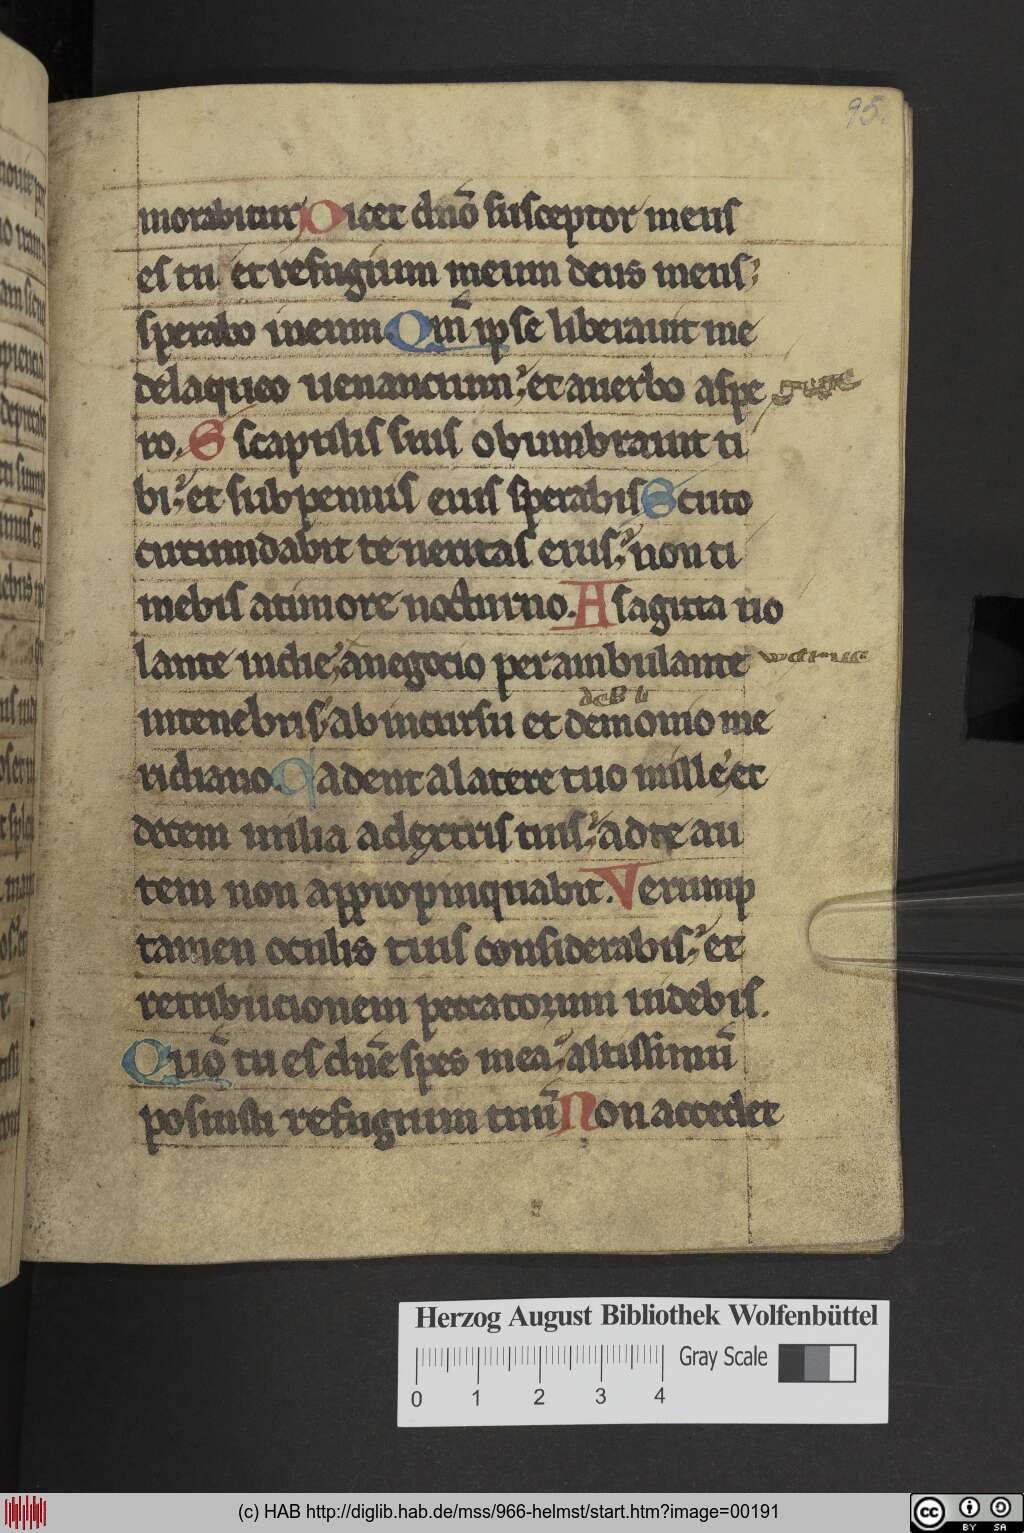 95.
morabitur Dicet dnō susceptor meus
es tu et refugium meum deus meus
sperabo ineum. Qm̄ ipse liberauit me
delaqueo uenantium: et auerbo aspe
ro. S scapulis suis obumbrauit ti
bi: et sub pennis eius sperabis Scuto
circumdabit te ueritas eius: non ti
mebis atimore nocturno. A sagitta uo
lante indie, anegocio perambulante
intenebris: ab incursu et demonio me
ridiano. Cadent alatere tuo mille: et
decem milia adextris tuis: ad te au
tem non appropinquabit. Verump
tamen oculis tuis considerabis: et
retributionem peccatorum uidebis.
Quō tu es dnē spes mea: altissimū
posuisti refugium tuū Non accedet
Herzog August Bibliothek Wolfenbüttel
Gray Scale
0 1 2 3 4
(c) HAB http://diglib.hab.de/mss/966-helmst/start.htm?image=00191
cc BY SA